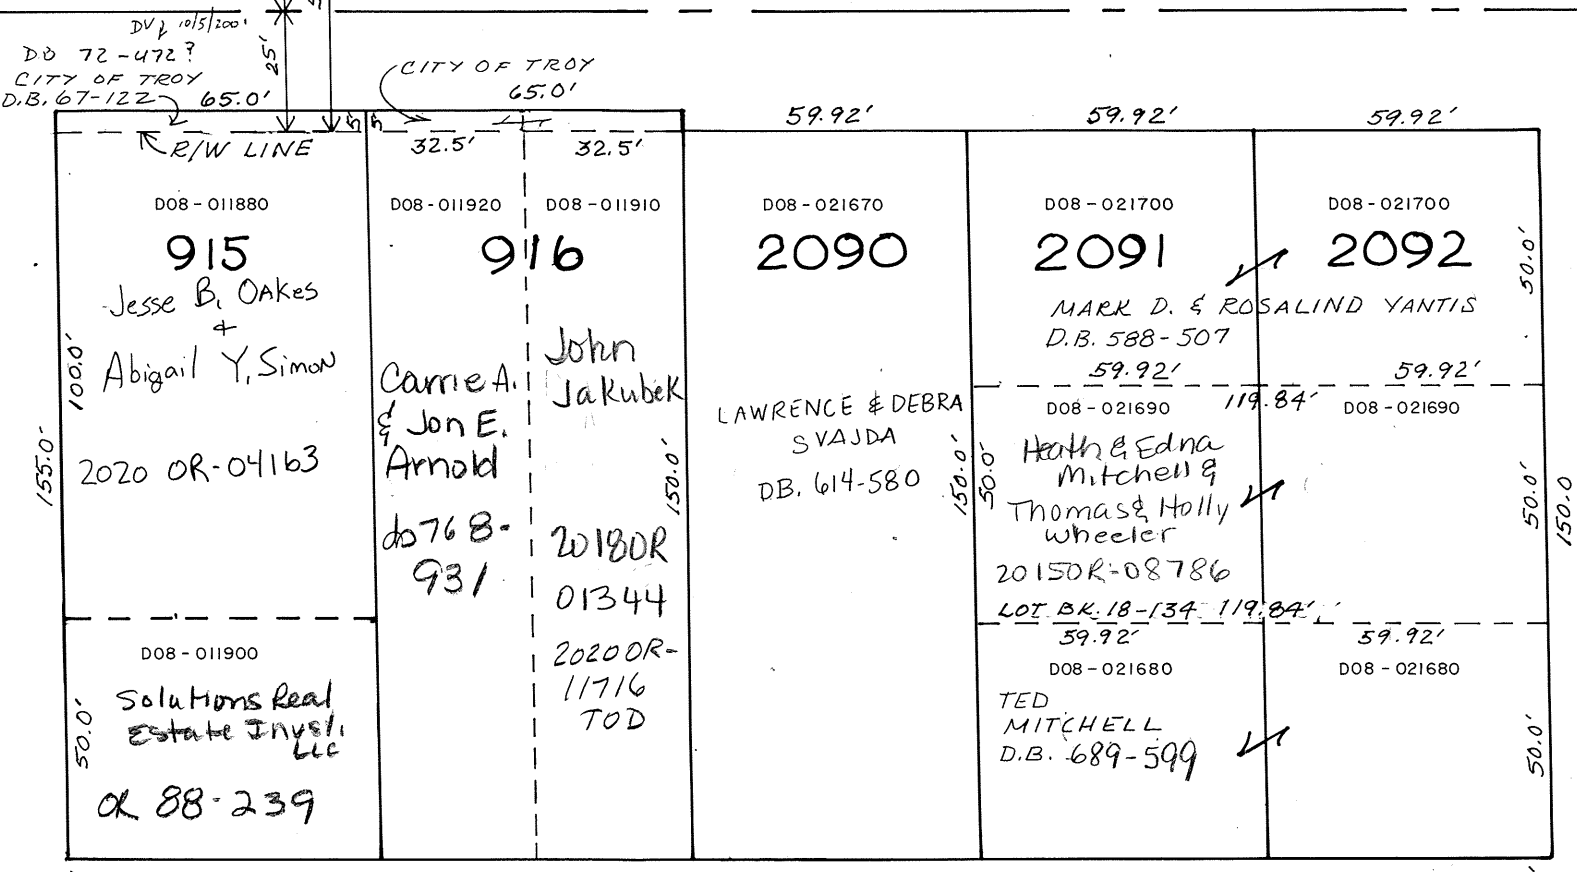 DVL 10/5/2001
DB 72-472?
CITY OF TROY
D.B. 67-122
65.0'
25'
CITY OF TROY
65.0'
59.92'
59.92'
59.92'
5
5
R/W LINE
32.5'
32.5'
D08-011880
915
Jesse B. Oakes
&
Abigail Y. Simon
2020 OR-04163
100.0'
155.0'
D08-011900
Solutions Real
Estate Invst.
LLC
OR 88-239
50.0'
D08-011920
D08-011910
916
Carrie A.
& Jon E.
Arnold
db 768-
931
John
Jakubek
2018OR
01344
2020OR-
11716
TOD
150.0'
D08-021670
2090
LAWRENCE & DEBRA
SVAJDA
DB. 614-580
150.0'
D08-021700
D08-021700
2091
2092
MARK D. & ROSALIND YANTIS
D.B. 588-507
50.0'
59.92'
59.92'
119.84'
D08-021690
D08-021690
Heath & Edna
Mitchell &
Thomas & Holly
Wheeler
2015OR-08786
LOT BK. 18-134
119.84'
50.0'
50.0'
150.0
59.92'
59.92'
D08-021680
D08-021680
TED
MITCHELL
D.B. 689-599
50.0'